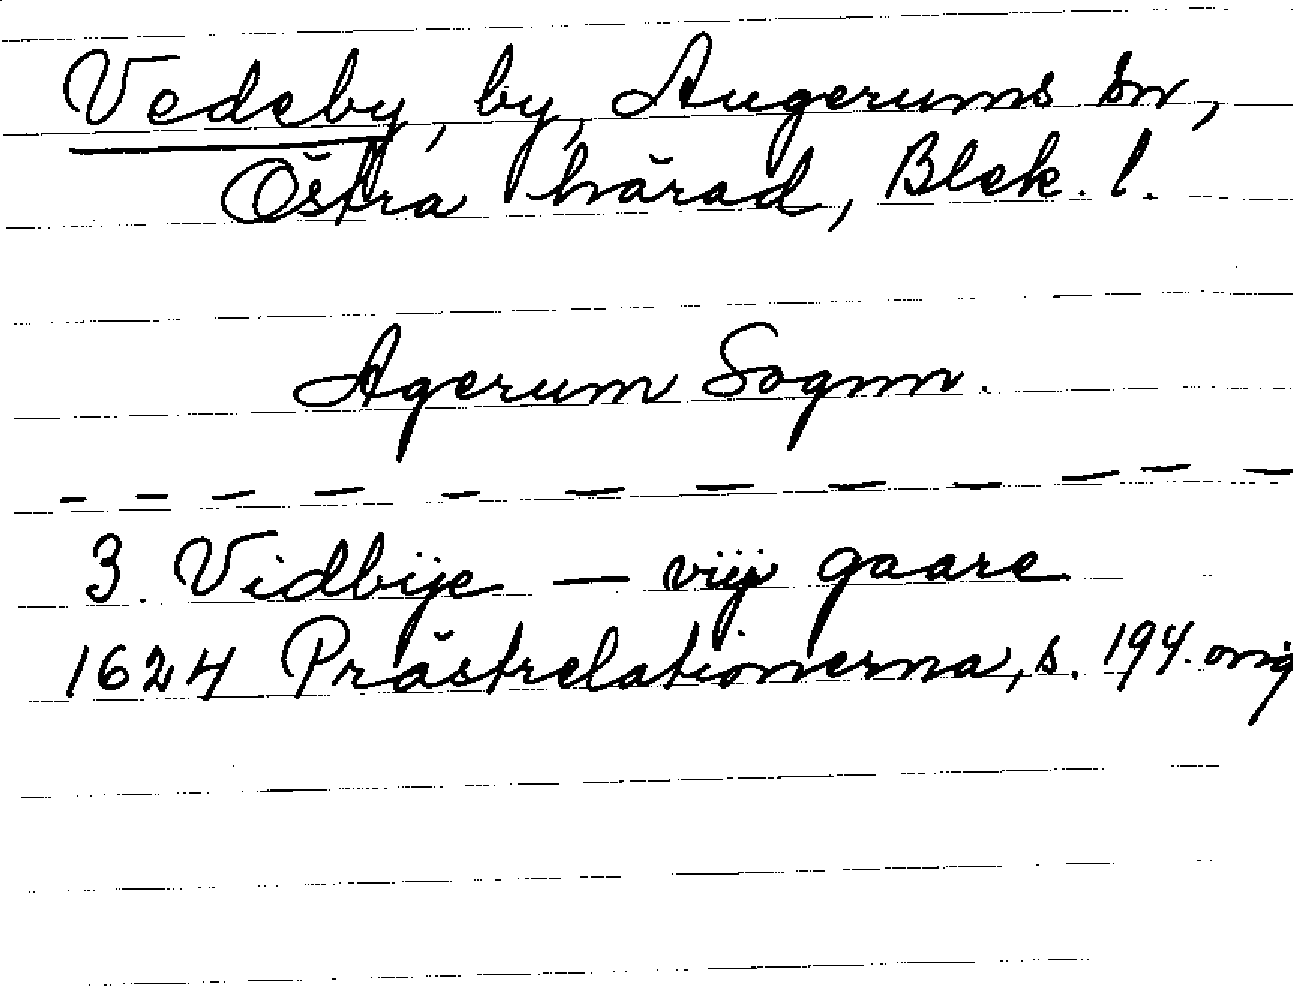 Vedeby, by, Augerums sn,
Östra härad, Blek. l.
Agerum Sognn.
- - - - - - - - - - - -
3. Vidbÿe — viij gaare
1624 Prästrelationerna, s. 194. orig